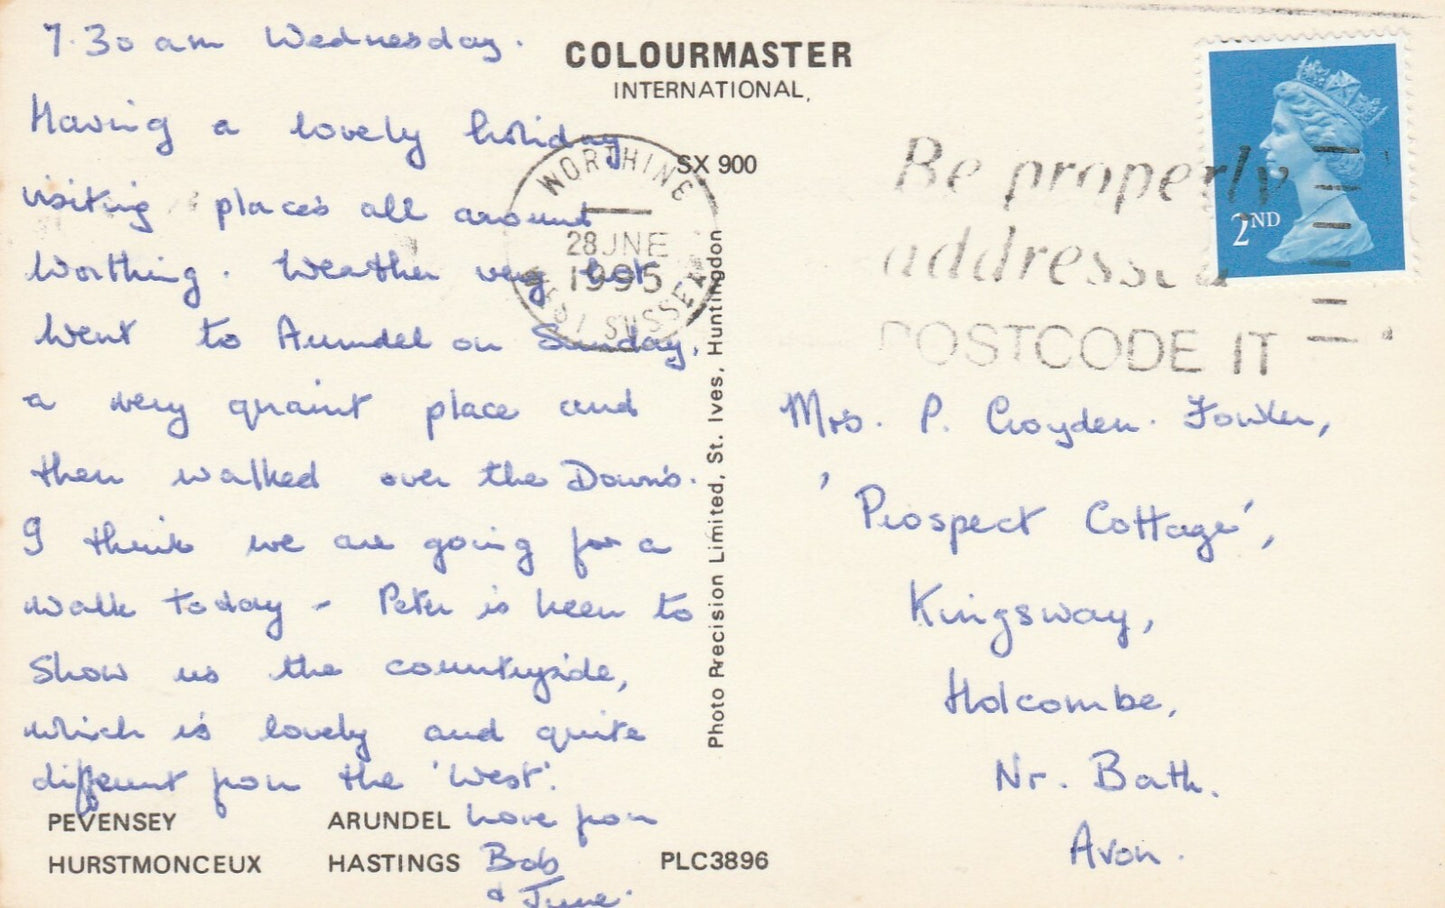 7.30 am Wednesday.
Having a lovely holiday
visiting places all around
Worthing. Weather very hot
Went to Arundel on Sunday,
a very quaint place and
then walked over the Downs.
I think we are going for a
walk today - Peter is keen to
show us the countryside,
which is lovely and quite
different from the 'West'.
Love from
Bob
& June.
COLOURMASTER
INTERNATIONAL,
SX 900
WORTHING
28 JNE
1995
WEST SUSSEX
Photo Precision Limited, St. Ives, Huntingdon
2ND
Be properly
addressed
POSTCODE IT
Mrs. P. Croyden-Fowler,
'Prospect Cottage',
Kingsway,
Holcombe,
Nr. Bath.
Avon.
PEVENSEY ARUNDEL
HURSTMONCEUX HASTINGS PLC3896